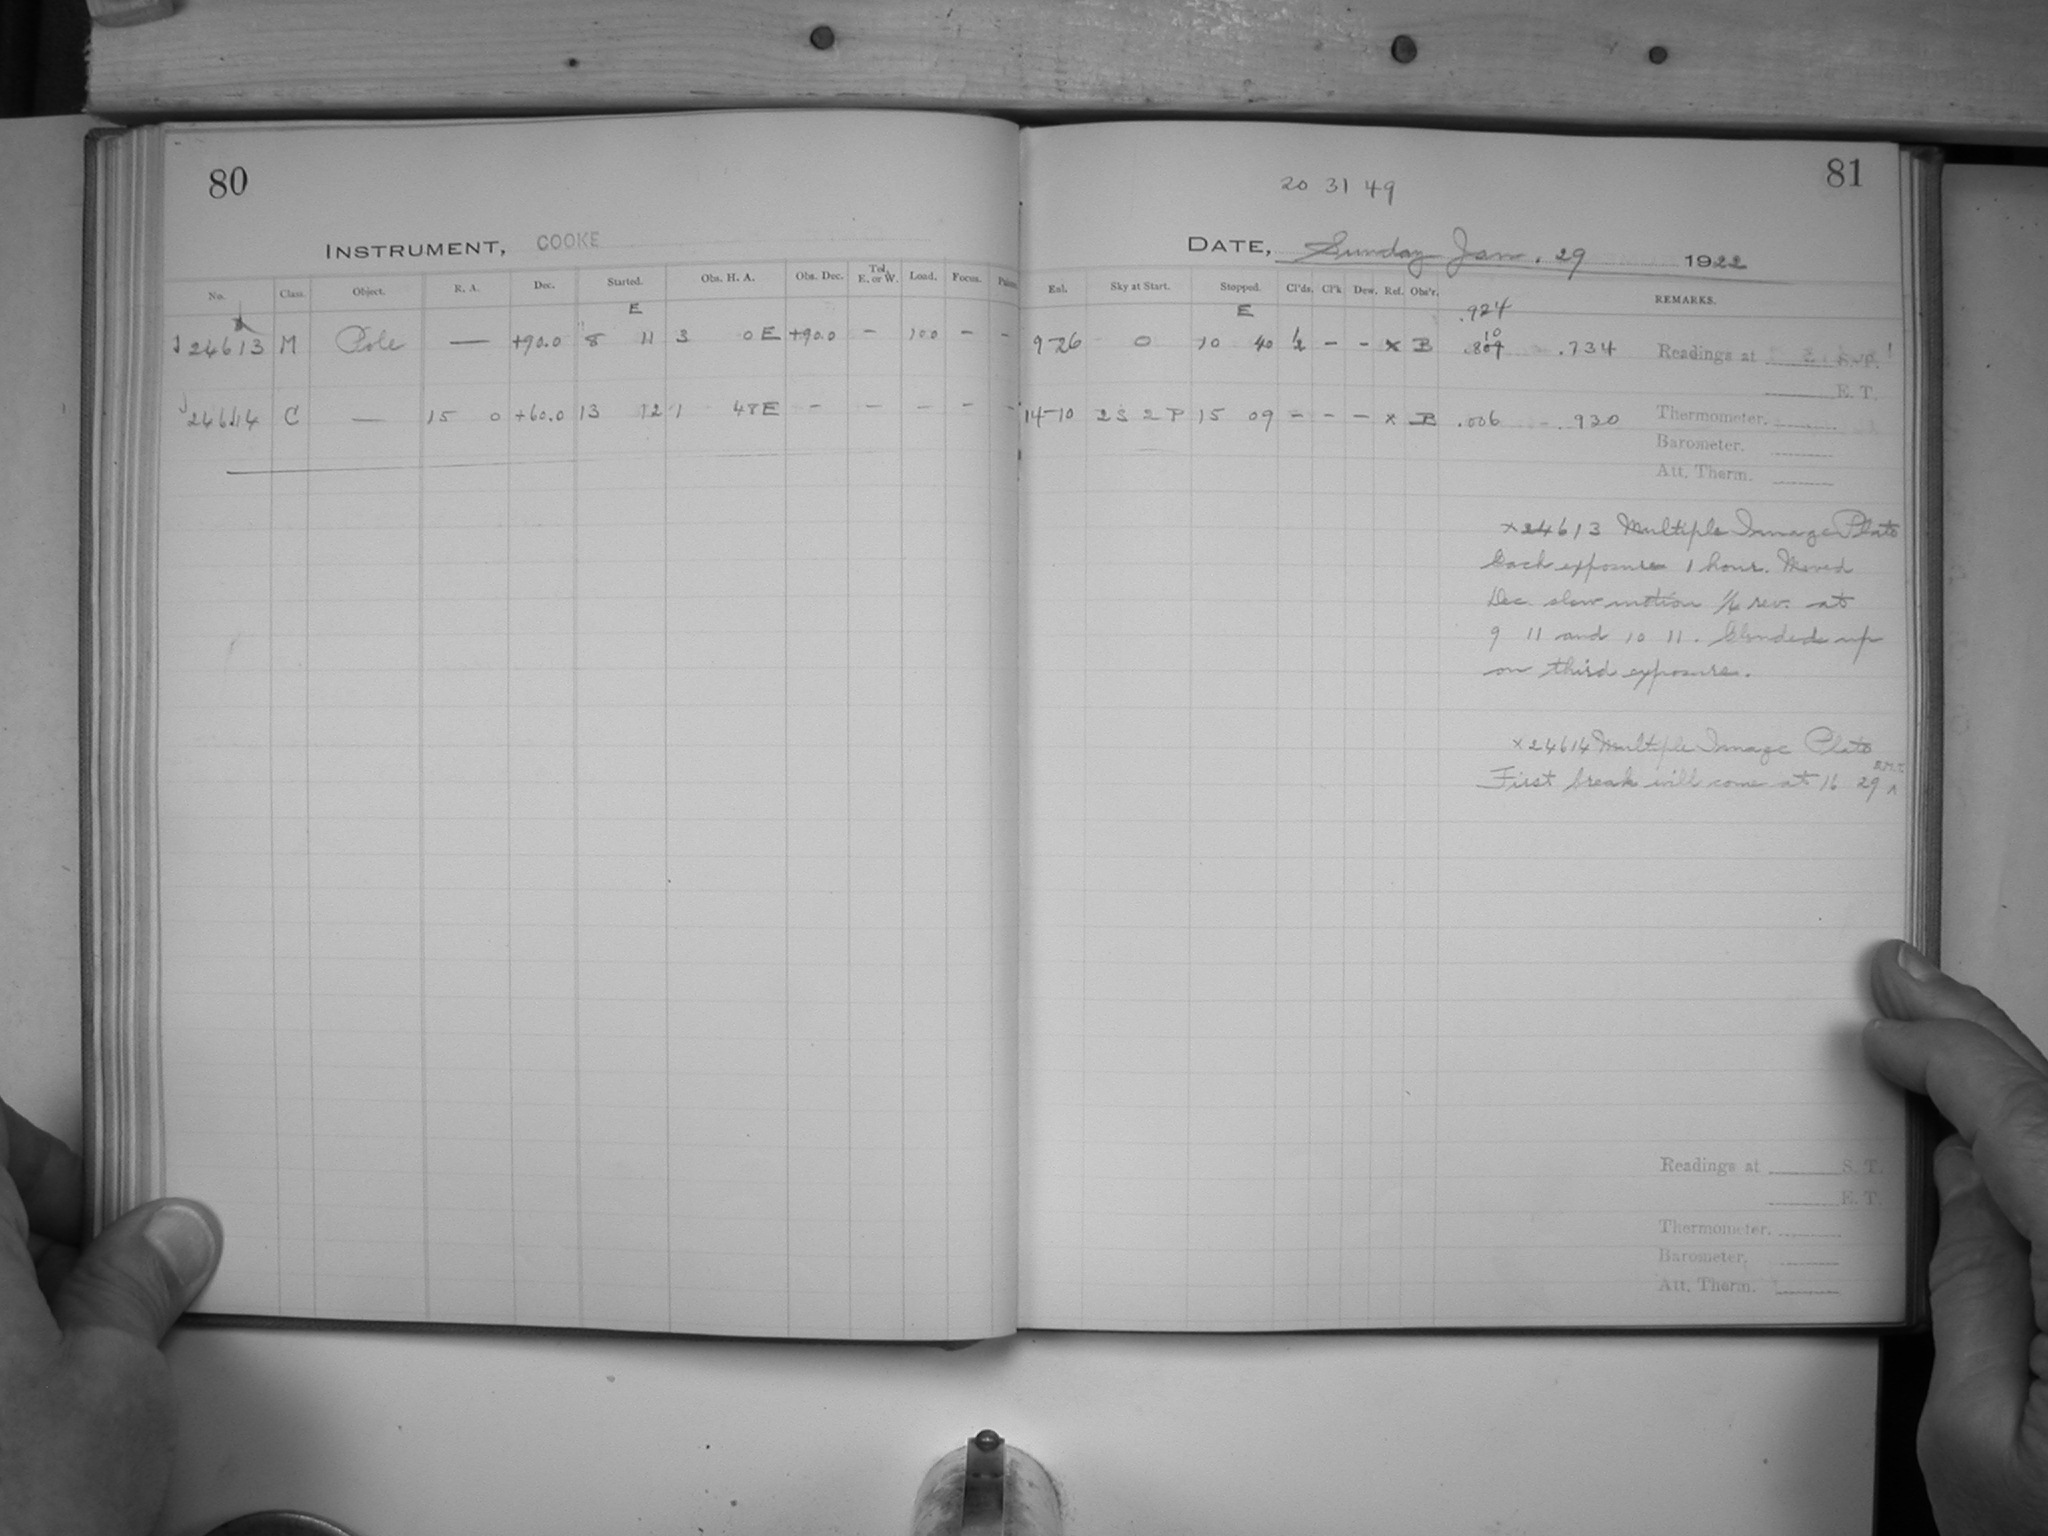 80
INSTRUMENT, COOKE
No. Class. Object. R. A. Dec. Started. Obs. H. A. Obs. Dec. Tel. E. or W. Load. Focus.
E
24613 M Pole — +90.0 8 11 3 0 E +90.0 – 100 – –
24614 C — 15 0 +60.0 13 12 1 48 E – – – – –
81
20 31 49
DATE, Sunday Jan. 29 1922
Enl. Sky at Start. Stopped. Cl'ds. Cl'k Dew. Ref. Obs'r. REMARKS.
E .924
10
9-26 0 10 40 ½ – – x B .809 .734 Readings at
E. T.
14-10 2S 2P 15 09 – – – x B .006 .930 Thermometer,
Barometer,
Att. Therm.
x24613 Multiple Image Plate
Each exposure 1 hour. Moved
Dec. slow motion 1/6 rev. at
9 11 and 10 11. Clouded up
on third exposure.
x24614 Multiple Image Plate
First break will come at 16 29
Readings at S. T.
E. T.
Thermometer,
Barometer,
Att. Therm.